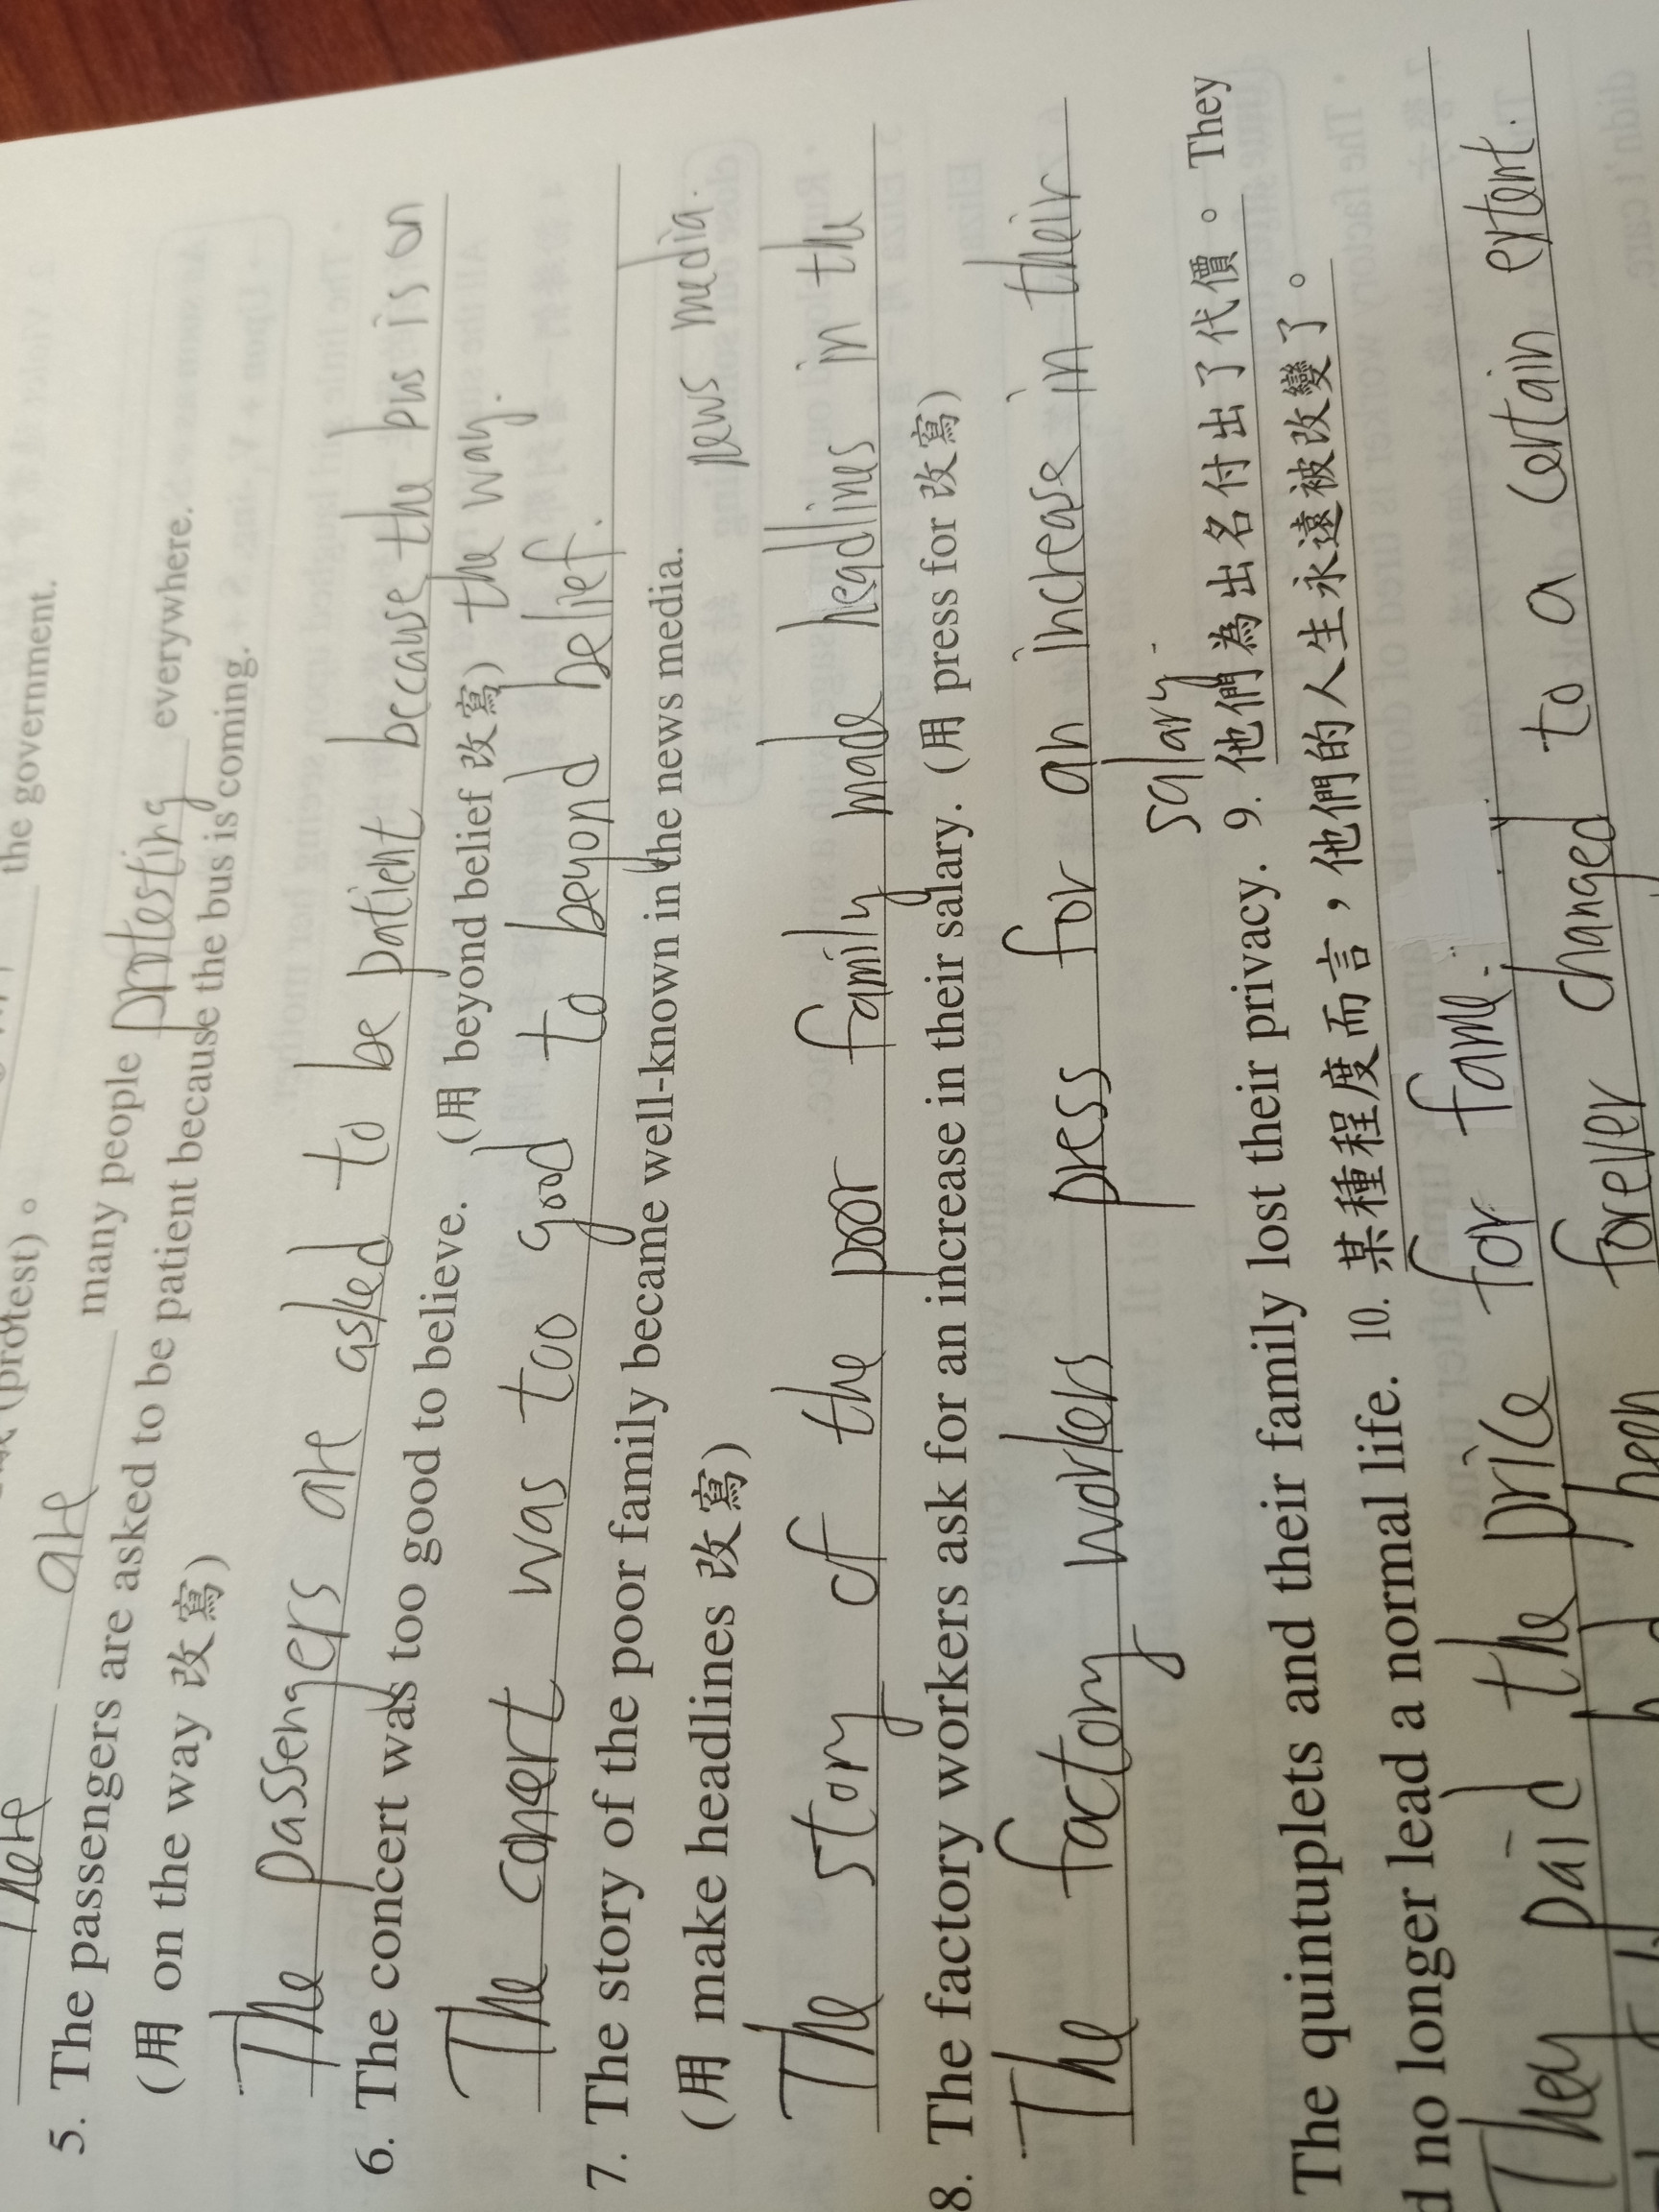 (protest)。
There are
the government.
many people protesting everywhere.
5. The passengers are asked to be patient because the bus is coming.
(用 on the way 改寫)
The passengers are asked to be patient because the bus is on
the way.
6. The concert was too good to believe. (用 beyond belief 改寫)
The concert was too good to beyond belief.
7. The story of the poor family became well-known in the news media.
(用 make headlines 改寫)
news media.
The story of the poor family made headlines in the
8. The factory workers ask for an increase in their salary. (用 press for 改寫)
The factory workers press for an increase in their
salary.
The quintuplets and their family lost their privacy. 9. 他們為出名付出了代價。They
no longer lead a normal life. 10. 某種程度而言，他們的人生永遠被改變了。
They paid the price for fame.
forever changed to a certain extent.